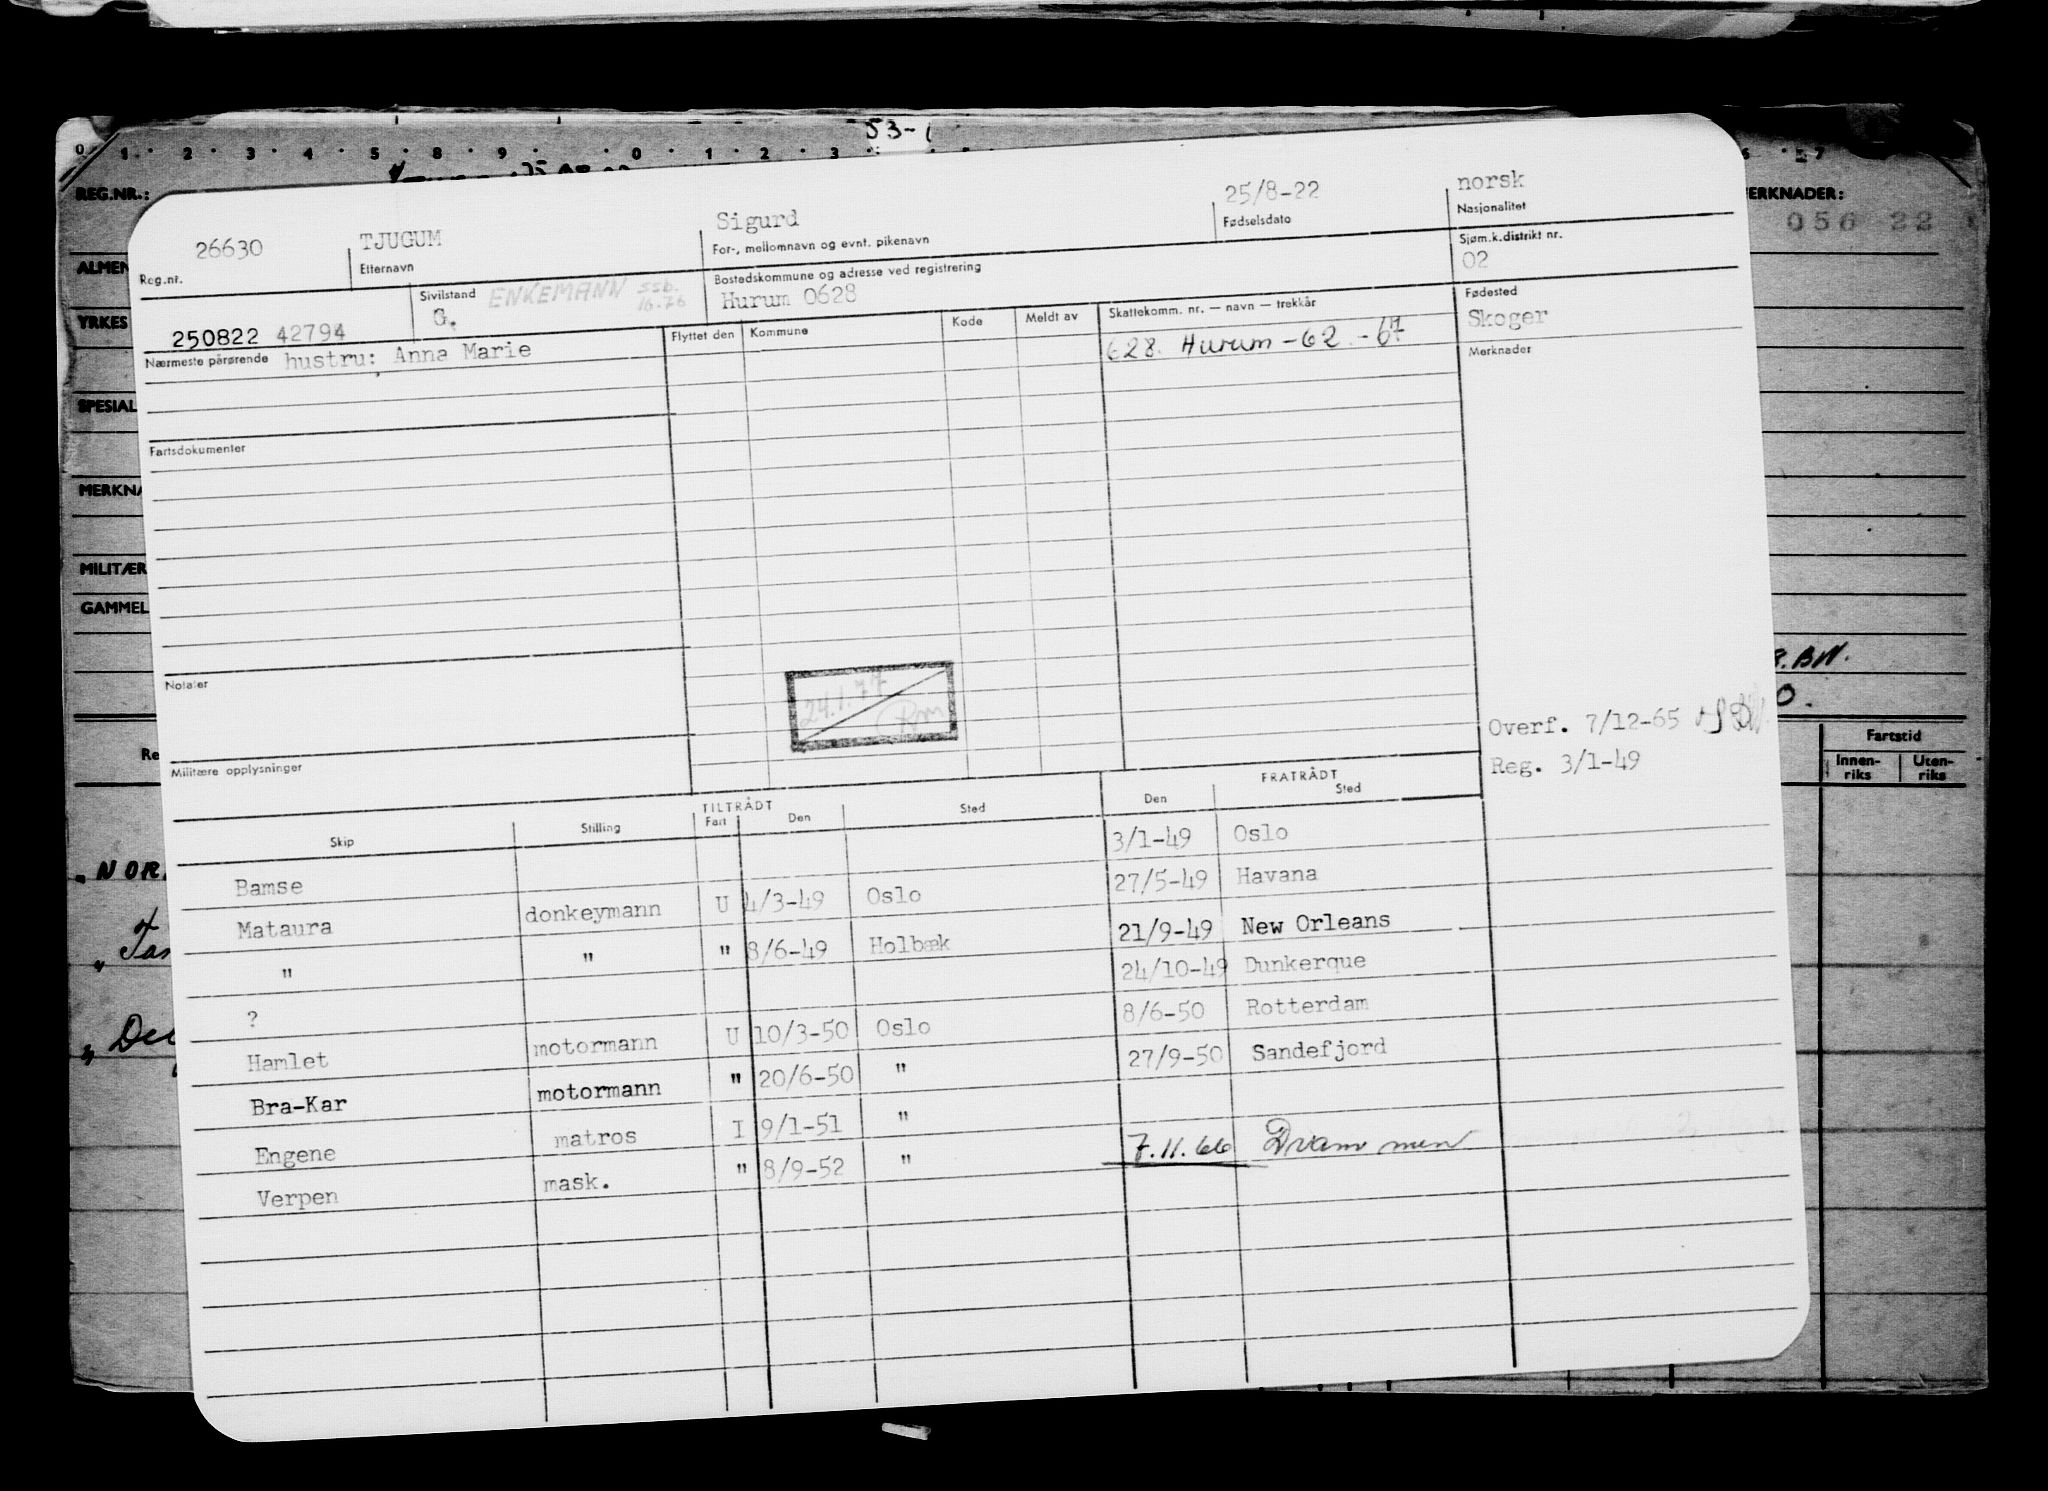 53-1
0 1 2 3 4 5 8 9 0 1 2 3
REG.NR.:
ALMEN
YRKES
SPESIAL
MERKNA
MILITÆR
GAMMEL
MERKNADER:
056 22
26630
Reg.nr.
TJUGUM
Etternavn
Sigurd
For-, mellomnavn og evnt. pikenavn
25/8-22
Fødselsdato
norsk
Nasjonalitet
250822 42794
Sivilstand ENKEMANN SSB. 16.76
G.
Bostedskommune og adresse ved registrering
Hurum 0628
Sjøm.k.distrikt nr.
02
Nærmeste pårørende hustru: Anna Marie
Flyttet den Kommune Kode Meldt av Skattekomm. nr. — navn — trekkår
628. Hurum -62.-67
Fødested
Skoger
Merknader
Fartsdokumenter
Notater
24.1.77
Militære opplysninger
Overf. 7/12-65
Reg. 3/1-49
TILTRÅDT FRATRÅDT
Skip Stilling Fart Den Sted Den Sted
Bamse 3/1-49 Oslo
Mataura donkeymann U 4/3-49 Oslo 27/5-49 Havana
" " " 8/6-49 Holbæk 21/9-49 New Orleans
? 24/10-49 Dunkerque
Hamlet motormann U 10/3-50 Oslo 8/6-50 Rotterdam
Bra-Kar motormann " 20/6-50 " 27/9-50 Sandefjord
Engene matros I 9/1-51 "
Verpen mask. " 8/9-52 " 7.11.66 Drammen
Fartstid
Innen-riks Uten-riks